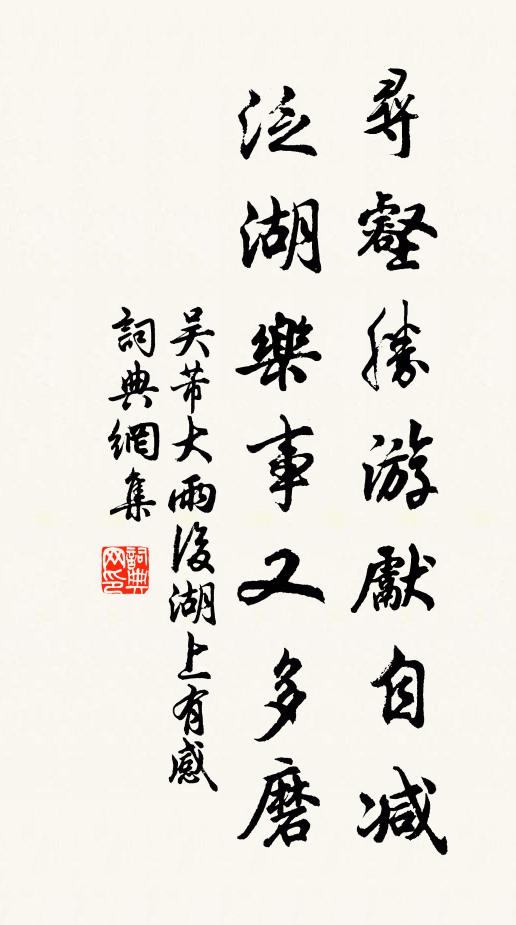 尋壑勝游獻自减
泛湖樂事又多磨
吴芾大雨後湖上有感
詞典網集
詞典网印